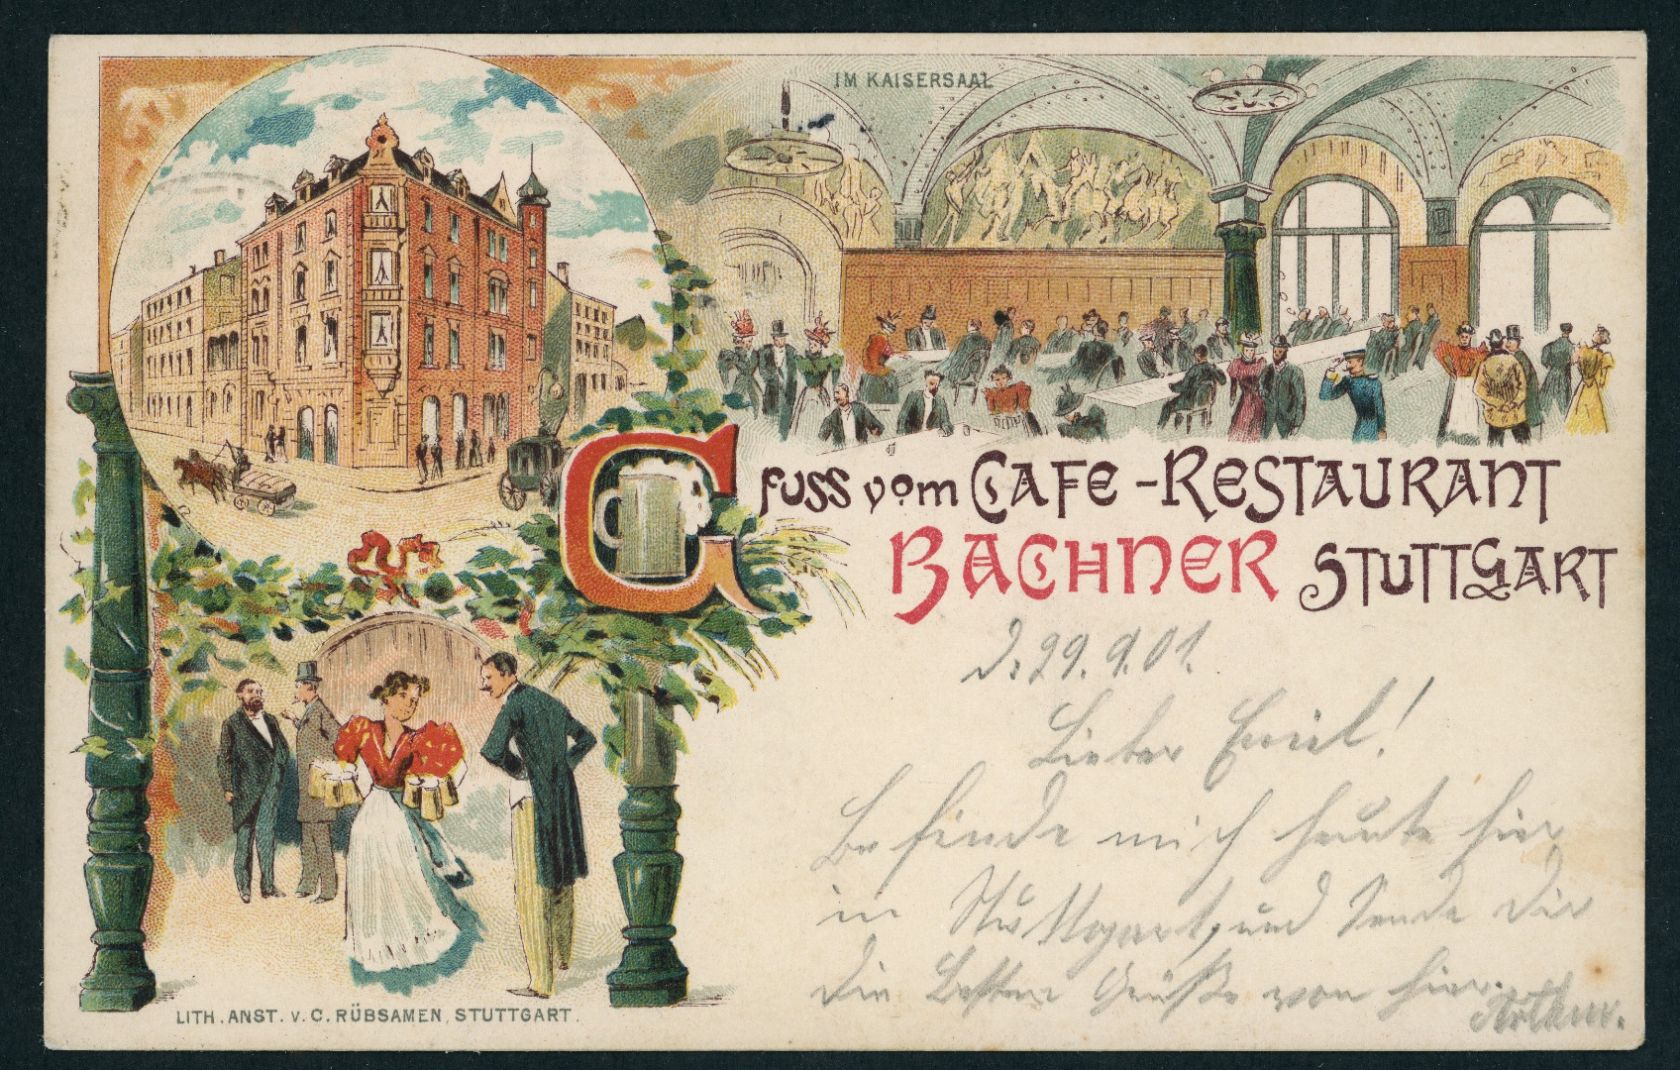 IM KAISERSAAL
Gruss vom CAFE-RESTAURANT
BACHNER STUTTGART
d. 29.9.01.
Lieber Emil!
Befinde mich heute hier
in Stuttgart, und sende dir
die Besten Grüße von hier.
Arthur.
LITH. ANST. v. C. RÜBSAMEN, STUTTGART.